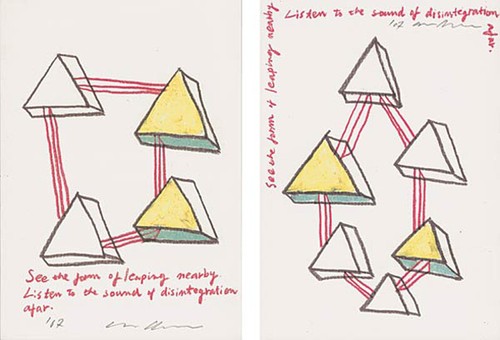 See the form of leaping nearby.
Listen to the sound of disintegration
afar.
'12
Listen to the sound of disintegration
afar.
'12
See the form of leaping nearby